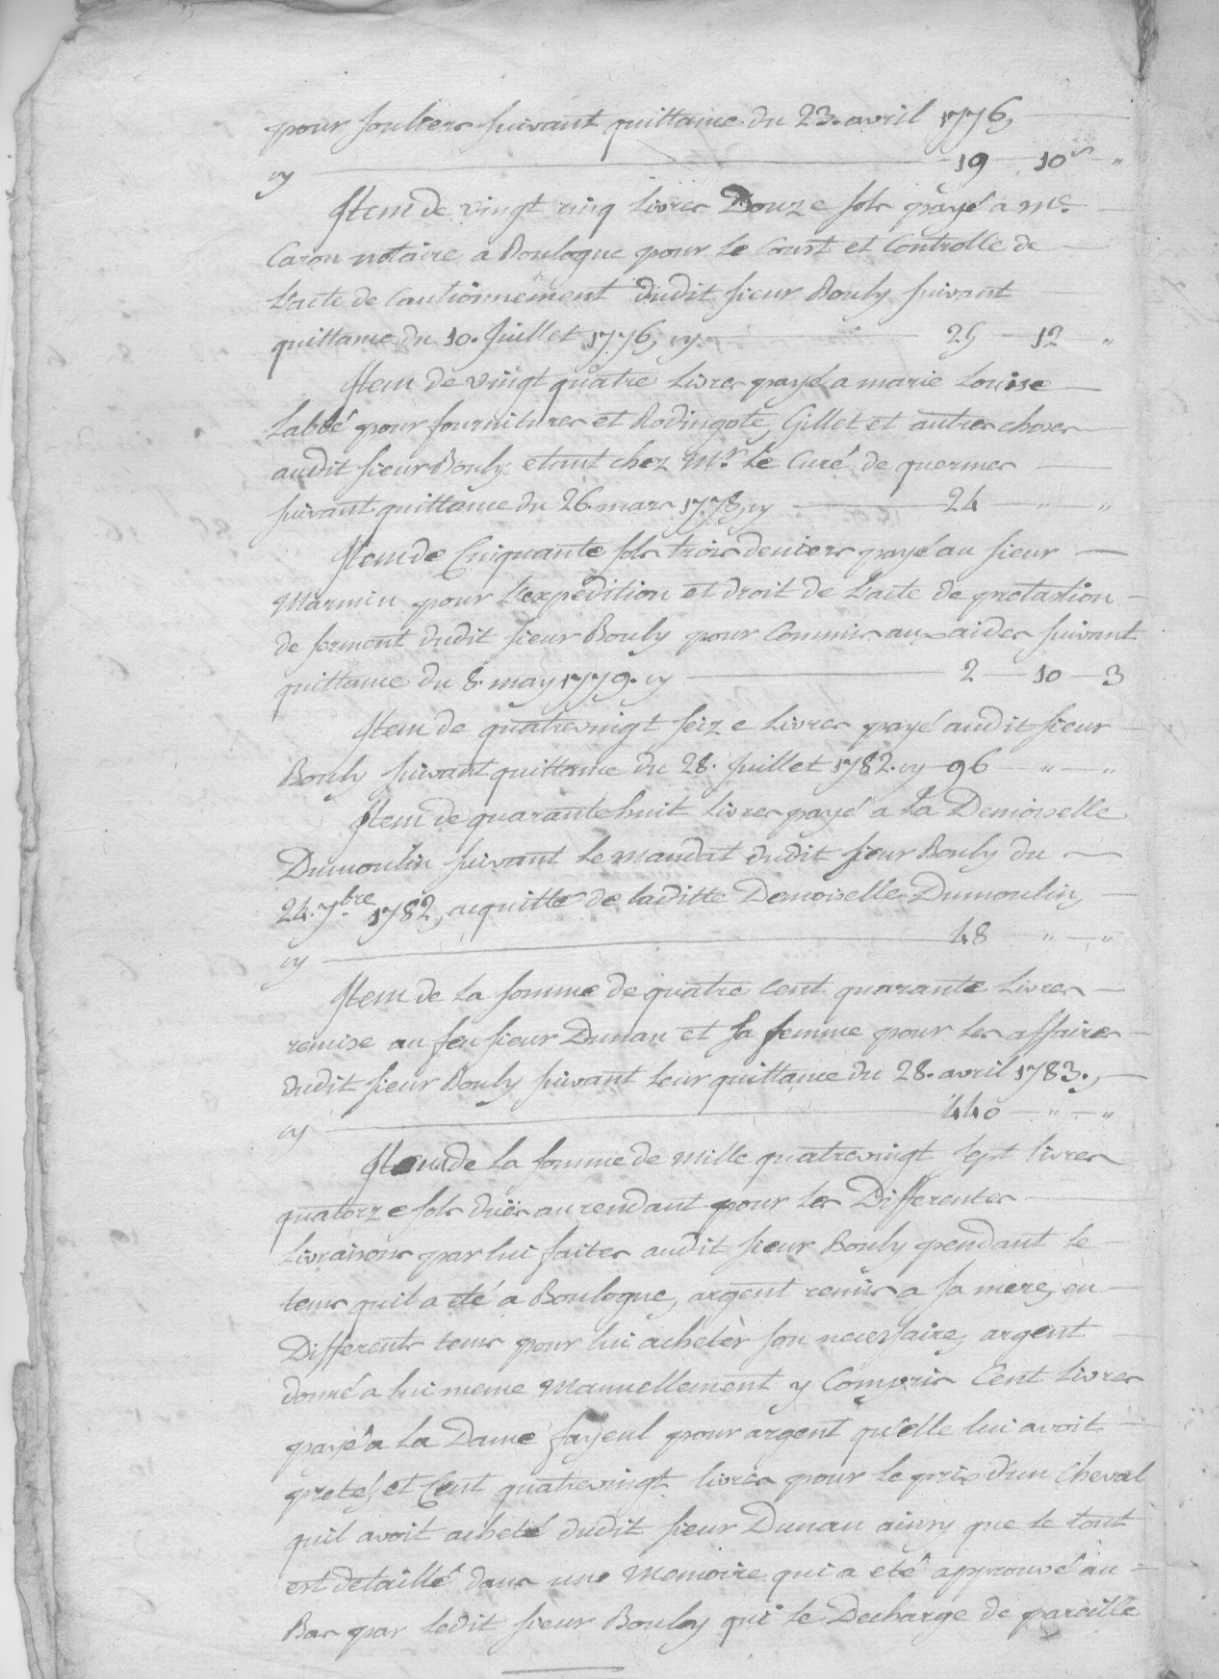 pour souliers suivant quittance du 23. avril 1776,
cy 19 10 s "
Item de vingt cinq livres Douze sols payé a me.
Caron notaire a Boulogne pour le Coust et Controlle de
L'acte de Cautionnement dudit sieur Bouly suivant
quittance du 10. Juillet 1776, cy 25 12 "
Item de vingt quatre Livres payé a marie Louise
Labbé pour fournitures et Rodingote, Gillet et autres choses
audit sieur Bouly etant chez Mr. le Curé de quermes
suivant quittance du 26. mars 1778, cy 24 " "
Item de Cinquante sols trois deniers payé au sieur
Marmin pour L'expedition et droit de L'acte de prestation
de serment dudit sieur Bouly pour Commis aux aides suivant
quittance du 8. may 1779. cy 2 10 3
Item de quatrevingt seize Livres payé audit sieur
Bouly suivant quittance du 28. Juillet 1782. cy 96 " "
Item de quarante huit Livres payé a La Demoiselle
Dumoulin suivant le mandat dudit sieur Bouly du
24. 7bre 1782, acquitté de laditte Demoiselle Dumoulin,
cy 48 " "
Item de La somme de quatre Cent quarante Livres
remise au feu sieur Dunan et sa femme pour les affaires
dudit sieur Bouly suivant leur quittance du 28. avril 1783.,
cy 440 " "
Item de La somme de mille quatrevingt sept livres
quatorze sols duës au rendant pour les Differentes
Livraisons par lui faites audit sieur Bouly pendant le
tems quil a eté a Boulogne, argent remis a sa mere, en
Differents tems pour lui acheter son necessaire, argent
donné a lui meme Manuellement y Compris Cent Livres
payé a La Dame fayeul pour argent qu'elle lui avoit
preté, et Cent quatrevingt livres pour le prix d'un Cheval
quil avoit acheté dudit sieur Dunan ainsy que le tout
est detaillé dans une Memoire qui a eté approuvé au
Bas par ledit sieur Bouly qui le Decharge de pareille